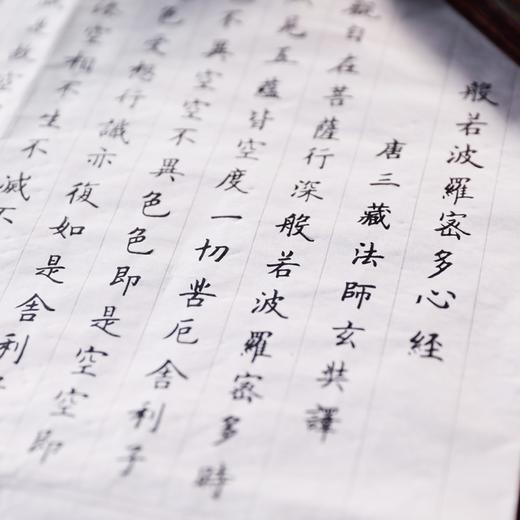 般若波羅密多心經
唐三藏法師玄奘譯
觀自在菩薩行深般若波羅密多時
見五蘊皆空度一切苦厄舍利子
不異空空不異色色即是空空即
色受想行識亦復如是舍利子
法空相不生不滅不
是故空